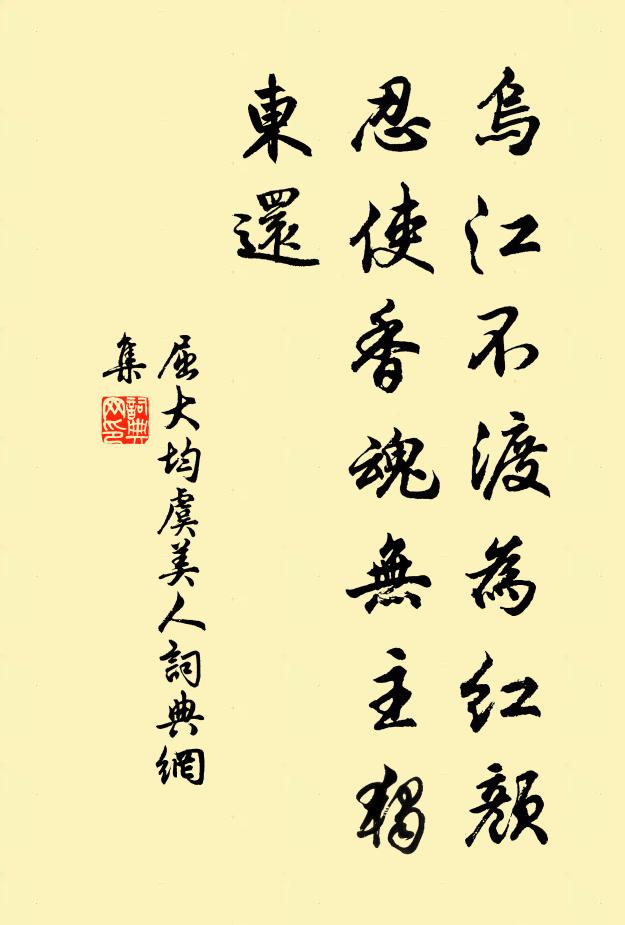 烏江不渡為紅顏
忍使香魂無主獨
東還
屈大均虞美人詞典網
集
詞典網印